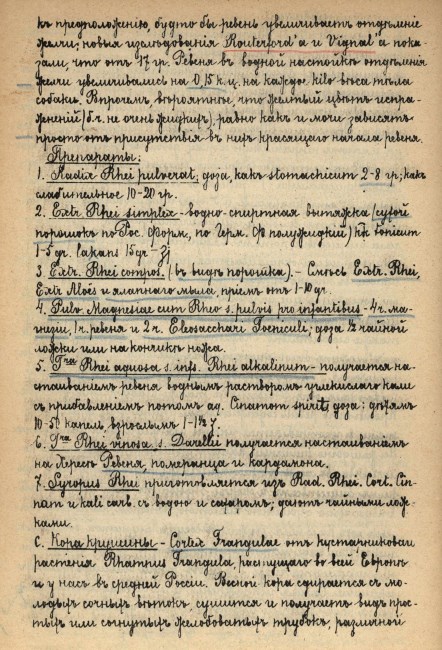 къ предположенію, будто бы ревень увеличиваетъ отдѣленіе
желчи; новыя изслѣдованія Routerford'a и Vignal'a пока-
зали, что отъ 17 гр. Ревеня въ водной настойкѣ отдѣленія
желчи увеличивались на 0,15 к.ц. на каждое kilo вѣса тѣла
собаки. Впрочемъ, вѣроятнѣе, что желтый цвѣтъ испра-
жненій (б.ч. не очень жидкихъ), равно какъ и мочи зависятъ
просто отъ присутствія въ нихъ красящаго начала ревеня.
Препараты:
1. Radix Rhei pulverat; доза, какъ stomachicum 2-8 гр; какъ
слабительное 10-20 гр.
2. Extr Rhei simplex - водно-спиртная вытяжка (сухой
порошокъ по Рос. Форм., по Герм. Ф полужидкій) tonicum
1-5 gr. laxans 15 gr -
3. Extr. Rhei compos. (въ видѣ порошка). - Смѣсь Extr. Rhei,
Extr Aloës и ялаппнаго мыла, пріемъ отъ 1-10 gr.
4. Pulv. Magnesiae cum Rheo s. pulvis pro infantibus - 4 г. ма-
гнезіи, 1 г. ревеня и 2 г. Eleosacchari Foeniculi; доза ½ чайной
ложки или на кончикъ ножа.
5. Tra Rhei aquosa s. infs. Rhei alkalinum - получается на-
стаиваніемъ ревеня воднымъ растворомъ углекислаго кали
съ прибавленіемъ потомъ aq. Cinamom spirit; доза: дѣтямъ
10-50 капель, взрослымъ 1-1½
6. Tra Rhei vinosa s. Darellii получается настаиваніемъ
на Хересѣ Ревеня, померанца и кардамона.
7. Syrupus Rhei приготовляется изъ Rad. Rhei. Cort. Cin-
nam и kali carb. съ водою и сахаромъ; даютъ чайными лож-
ками.
С. Кора крушины - Cortex Frangulae отъ кустарниковаго
растенія Rhamnus Frangula, растущаго во всей Европѣ
и у насъ въ средней Россіи. Весной кора сдирается съ мо-
лодыхъ сочныхъ вѣтокъ, сушится и получаетъ видъ прос-
тыхъ или согнутыхъ желобоватыхъ трубокъ, различной